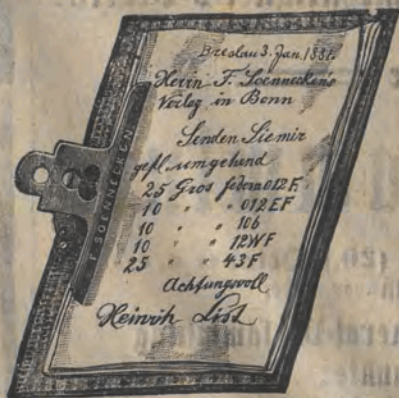 Breslau 3. Jan. 1881.
Herrn F. Soennecken's
Verlag in Bonn
Senden Sie mir
gefl. umgehend
25 Gros federn 012 F
10 " " 012 EF
10 " " 106
10 " " 12WF
25 " " 43 F
Achtungsvoll
Heinrih List
F. SOENNECKEN